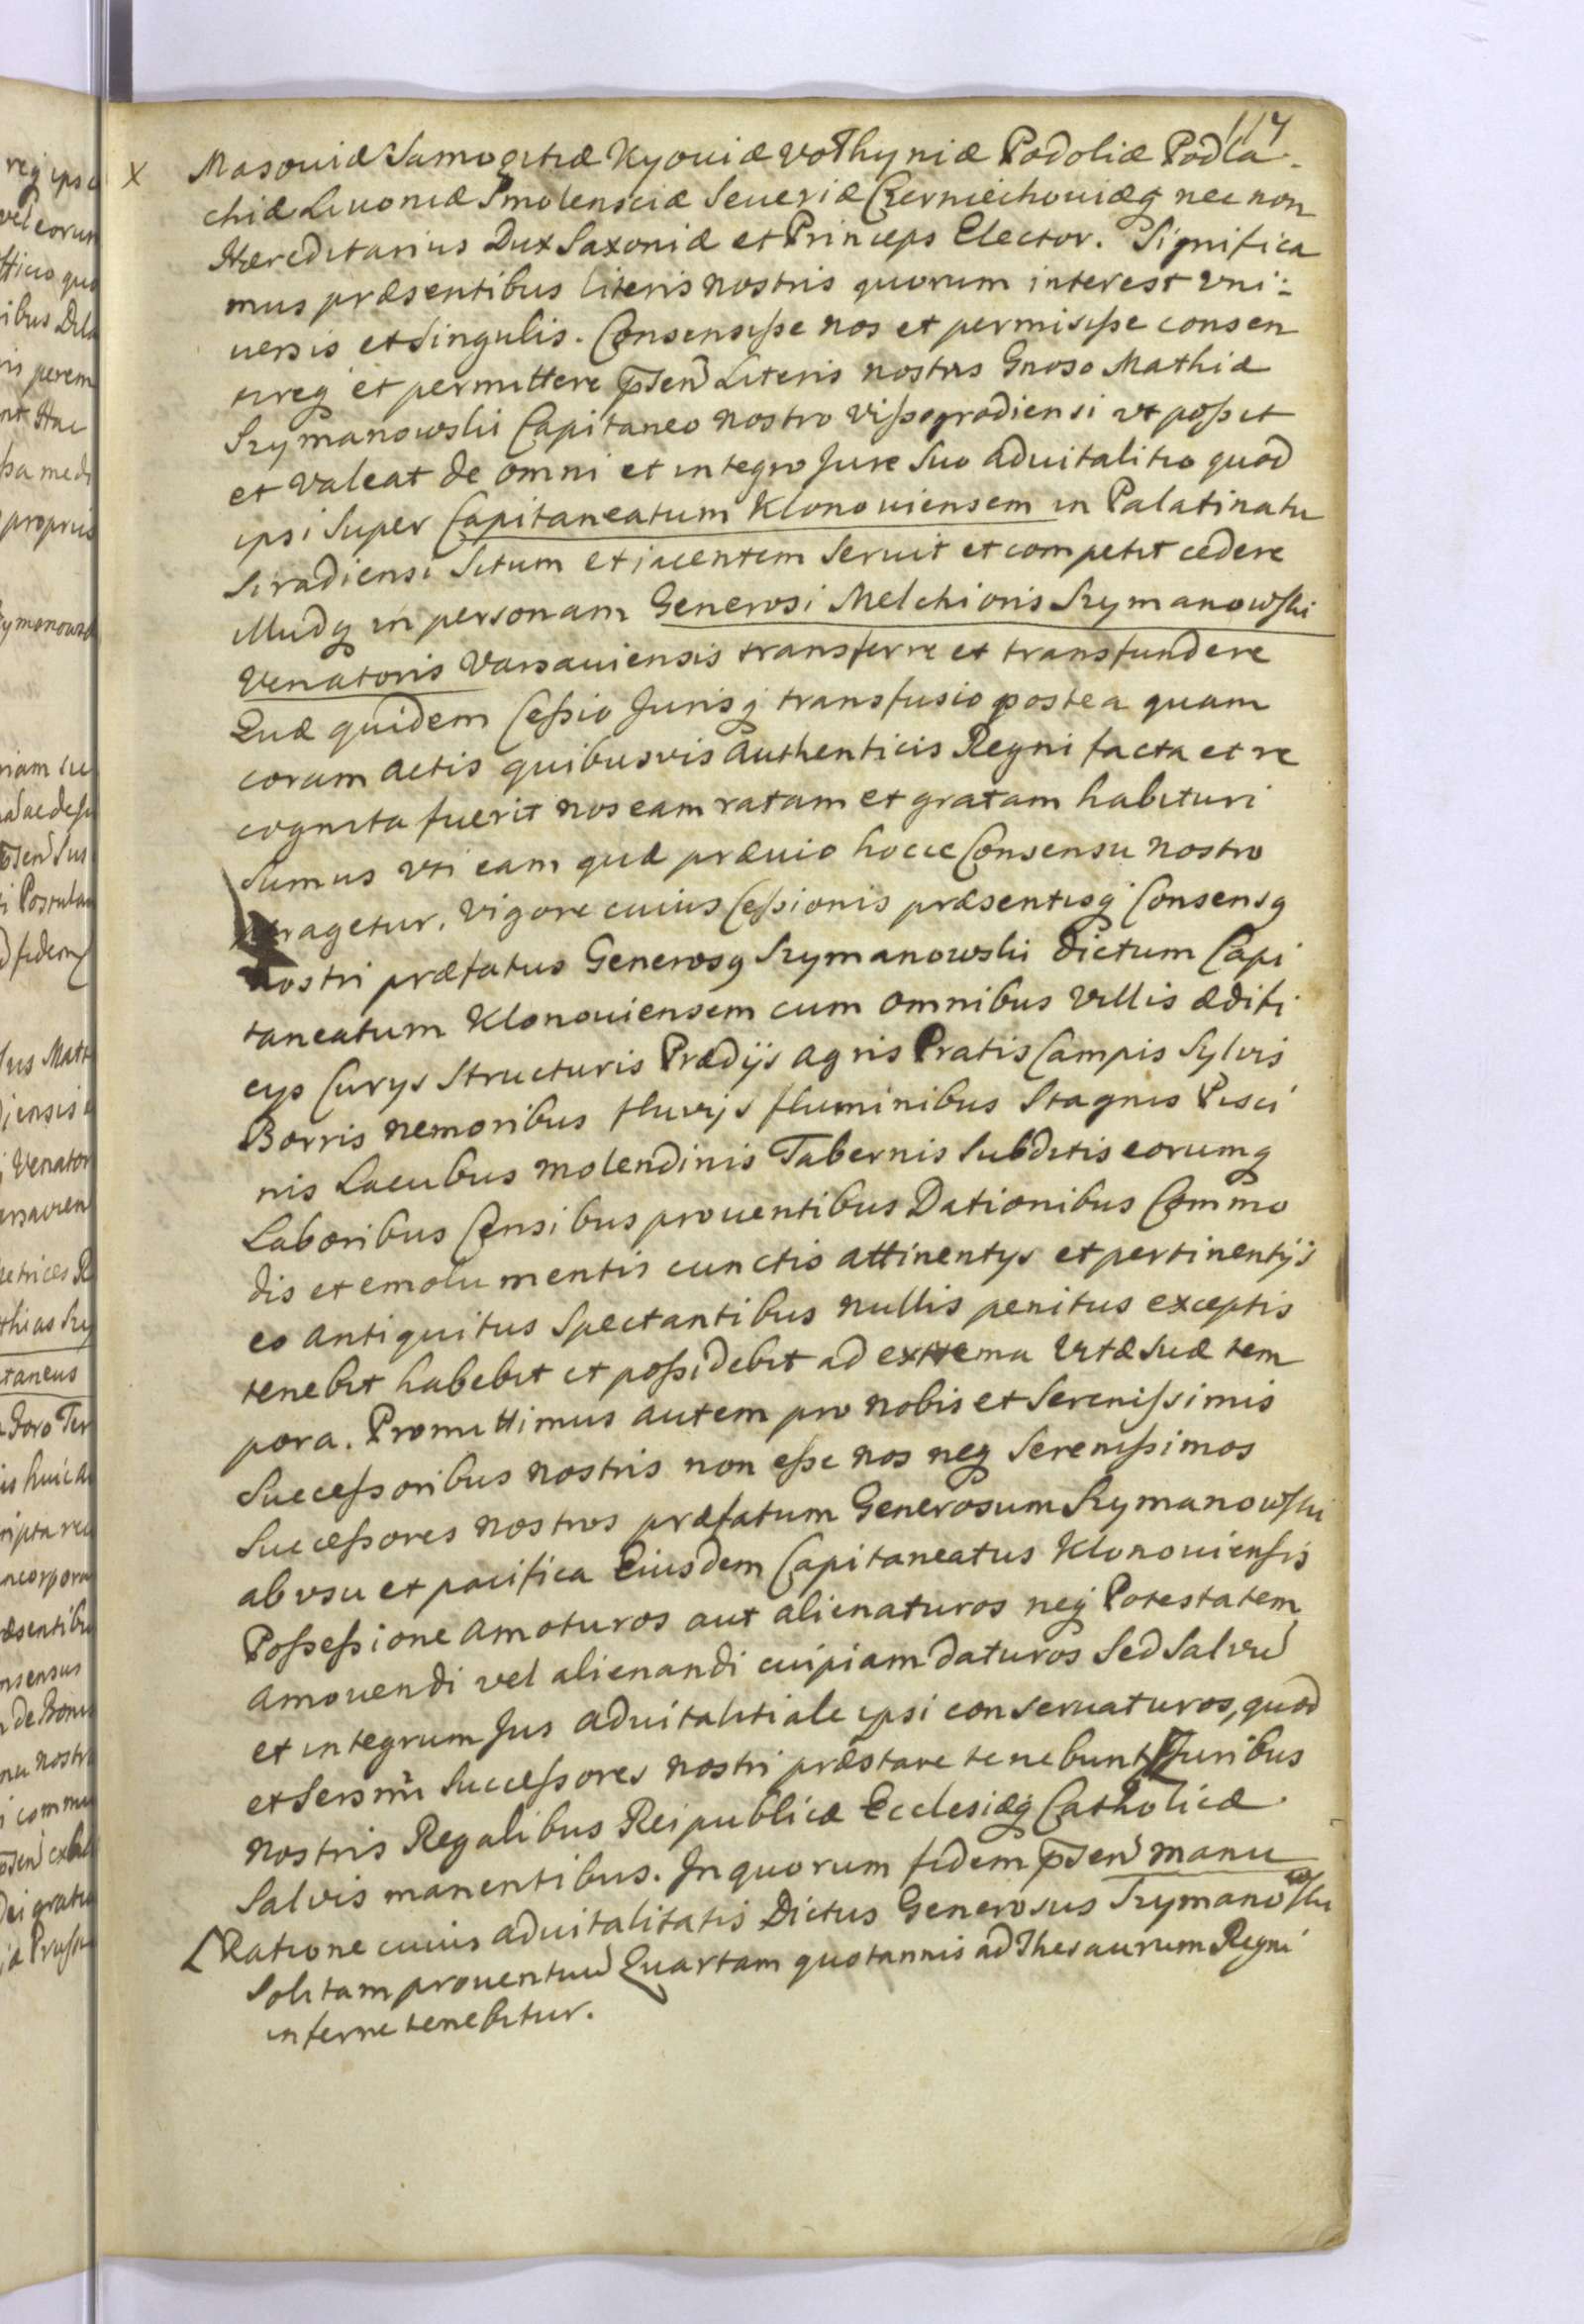 117
x Masouiæ Samogitiæ Kyouiæ Volhyniæ Podoliæ Podla-
chiæ Liuoniæ Smolensciæ Seueriæ Czerniechouiæq nec non
Hæreditarius Dux Saxoniæ et Princeps Elector. Significa
mus præsentibus literis nostris quorum interest vni:
uersis et singulis. Consensisse nos et permisisse consen
tireq et permittere pñsen Literis nostris Gnoso Mathiæ
Szymanowski Capitaneo nostro Vissogrodiensi vt possit
et valeat de omni et integro Jure suo aduitalitio quod
ipsi super Capitaneatum Klonouiensem in Palatinatu
Siradiensi situm et iacentem seruit et competit cedere
illudq in personam Generosi Melchioris Szymanowski
Venatoris Varsauiensis transferre et transfundere
Quæ quidem Cessio Jurisq transfusio postea quam
coram actis quibusvis authenticis Regni facta et re
cognita fuerit nos eam ratam et gratam habituri
sumus vti eam quæ præuio hocce Consensu nostro
peragetur. Vigore cuius Cessionis præsentisq Consensq
nostri præfatus Generosq Szymanowski dictum Capi
taneatum Klonouiensem cum omnibus Villis ædifi
cys Curys Structuris Prædijs agris Pratis Campis Sylvis
Borris nemoribus fluvijs fluminibus Stagnis Pisci
nis Lacubus molendinis Tabernis Subditis eorumq
Laboribus Censibus prouentibus Dationibus Commo
dis et emolumentis cunctis attinentys et pertinentijs
eo antiquitus Spectantibus nullis penitus exceptis
tenebit habebit et possidebit ad extrema Vitæ suæ tem
pora. Promittimus autem pro nobis et Serenissimis
Successoribus nostris non esse nos neq Serenissimos
Successores nostros præfatum Generosum Szymanowski
ab vsu et pacifica Eiusdem Capitaneatus Klonouiensis
Possessione amoturos aut alienaturos neq Potestatem
amouendi vel alienandi cuipiam daturos Sed Salvũ
et integrum Jus aduitalitiale ipsi conseruaturos, quod
et Sersmi Successores nostri præstare tenebunt Juribus
nostris Regalibus Reipublicæ Ecclesiæq Catholicæ
Salvis manentibus. In quorum fidem pñsen manu
Ratione cuius aduitalitatis Dictus Generosus Szymanowski
Solitam prouentuũ Quartam quotannis ad Thesaurum Regni
inferre tenebitur.